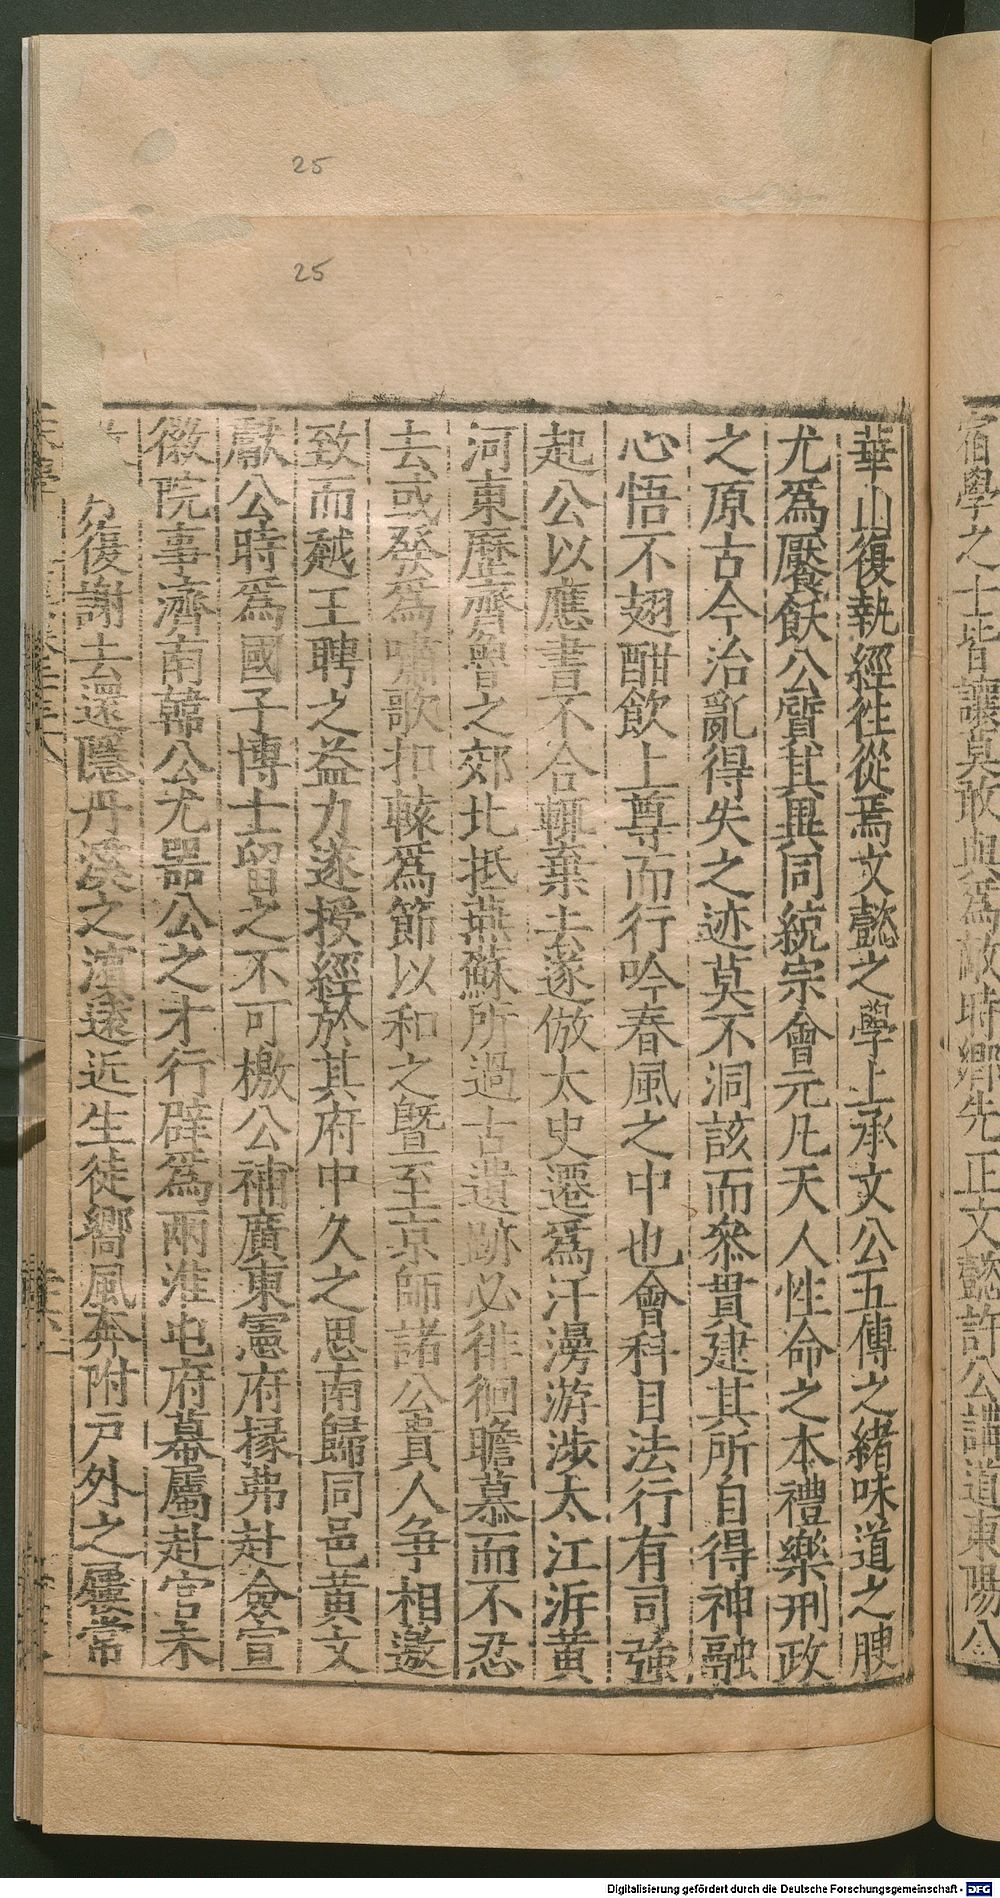 25
25
宿學之士皆讓莫敢與爲敵時鄉先正文懿許公講道東陽八
華山復執經徃從焉文懿之學上承文公五傳之緒味道之腴
尤爲饜飫公質其異同統宗會元凡天人性命之本禮樂刑政
之原古今治亂得失之迹莫不洞該而叅貫建其所自得神融
心悟不翅酣飲上尊而行吟春風之中也會科目法行有司強
起公以應書不合輒棄去遂倣太史遷爲汗漫游涉大江泝黃
河東歷齊魯之郊北抵燕蘇所過古遺跡必徘徊瞻慕而不忍
去或發爲嘯歌扣轅爲節以和之曁至京師諸公貴人争相邀
致而越王聘之益力遂授經於其府中久之思南歸同邑黃文
獻公時爲國子博士留之不可檄公補廣東憲府掾弗赴僉宣
徽院事濟南韓公尤器公之才行辟爲兩淮屯府幕屬赴官未
復謝去還隱丹溪之濵遠近生徒嚮風奔附戸外之屨常
Digitalisierung gefördert durch die Deutsche Forschungsgemeinschaft - DFG